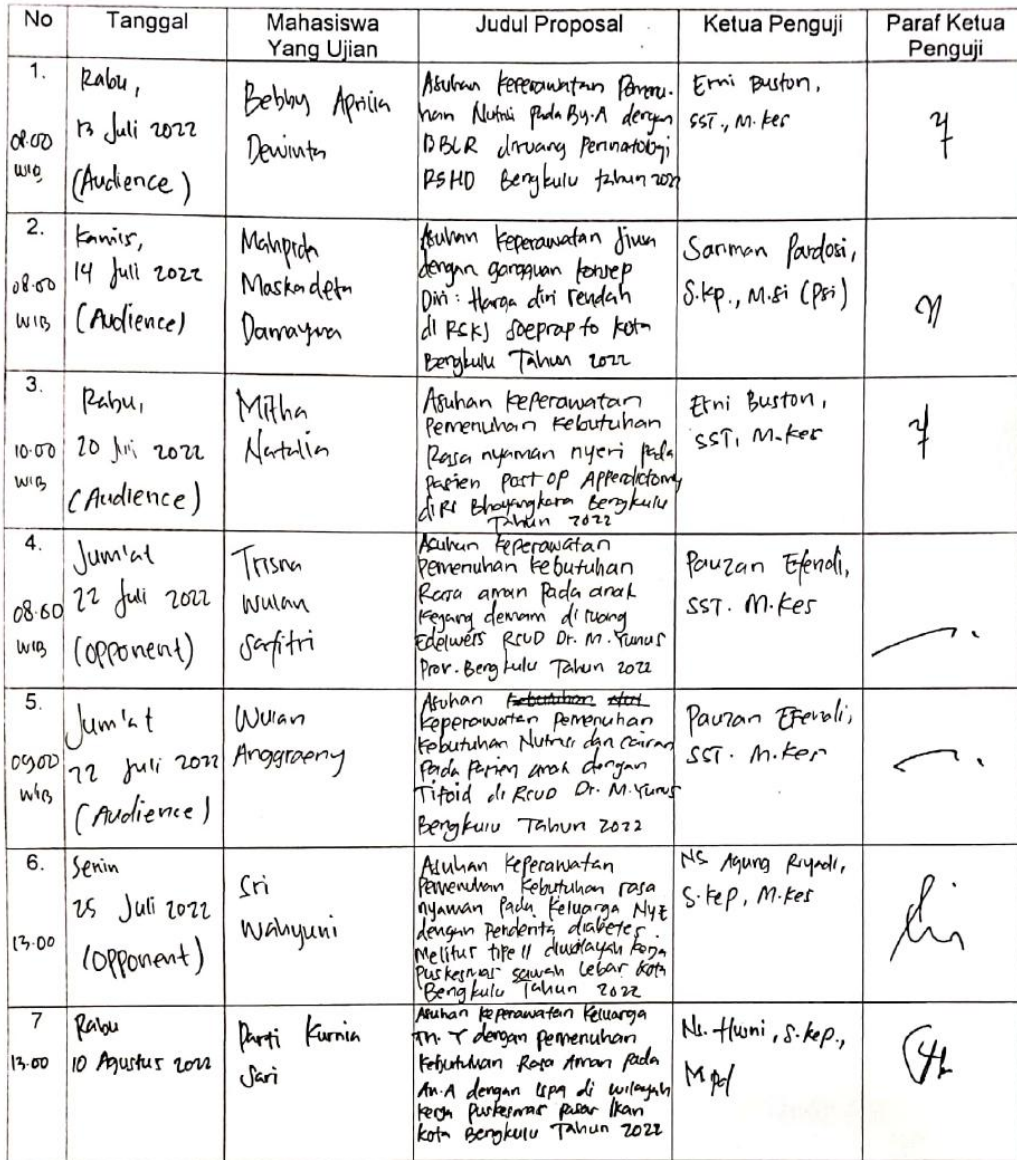 No Tanggal Mahasiswa Yang Ujian Judul Proposal Ketua Penguji Paraf Ketua Penguji
1.
08.00
WIB
Rabu,
13 Juli 2022
(Audience)
Bebby Aprilia
Dewinta
Asuhan keperawatan Pemenu-
han Nutrisi Pada By.A dengan
BBLR diruang Perinatologi
RSHD Bengkulu tahun 2022
Erni Buston,
SST., M.Kes
2.
08.00
WIB
Kamis,
14 Juli 2022
(Audience)
Mahpida
Maskadefa
Damayna
Asuhan keperawatan Jiwa
dengan gangguan konsep
Diri : Harga diri rendah
di RSKJ Soeprapto kota
Bengkulu Tahun 2022
Sariman Pardosi,
S.kp., M.si (Psi)
3.
10.00
WIB
Rabu,
20 Juli 2022
(Audience)
Mitha
Natalia
Asuhan keperawatan
Pemenuhan kebutuhan
Rasa nyaman nyeri pada
pasien post OP Appendictomy
di RS Bhayangkara Bengkulu
Tahun 2022
Erni Buston,
SST, M.Kes
4.
08.00
WIB
Jum'at
22 Juli 2022
(opponent)
Trisna
Wulan
Safitri
Asuhan keperawatan
Pemenuhan kebutuhan
Rasa aman Pada anak
kejang demam di ruang
Edelweis RSUD Dr. M. Yunus
Prov. Bengkulu Tahun 2022
Pauzan Efendi,
SST. M.Kes
5.
09.00
WIB
Jum'at
22 Juli 2022
(Audience)
Wulan
Anggraeny
Asuhan
keperawatan Pemenuhan
kebutuhan Nutrisi dan cairan
Pada Pasien anak dengan
Tifoid di RSUD Dr. M. Yunus
Bengkulu Tahun 2022
Pauzan Efendi,
SST. M.Kes
6.
13.00
Senin
25 Juli 2022
(opponent)
Sri
Wahyuni
Asuhan keperawatan
Pemenuhan kebutuhan rasa
nyaman Pada keluarga Ny E
dengan Penderita diabetes
Melitus tipe II diwilayah kerja
Puskesmas sawah Lebar kota
Bengkulu Tahun 2022
NS Agung Riyadi,
S.kep, M.Kes
7
13.00
Rabu
10 Agustus 2022
Parti Kurnia
Sari
Asuhan keperawatan keluarga
Tn. Y dengan pemenuhan
kebutuhan Rasa Aman pada
An.A dengan ISPA di wilayah
kerja puskesmas pasar Ikan
kota Bengkulu Tahun 2022
Ns. Husni, S.kep.,
M.pd